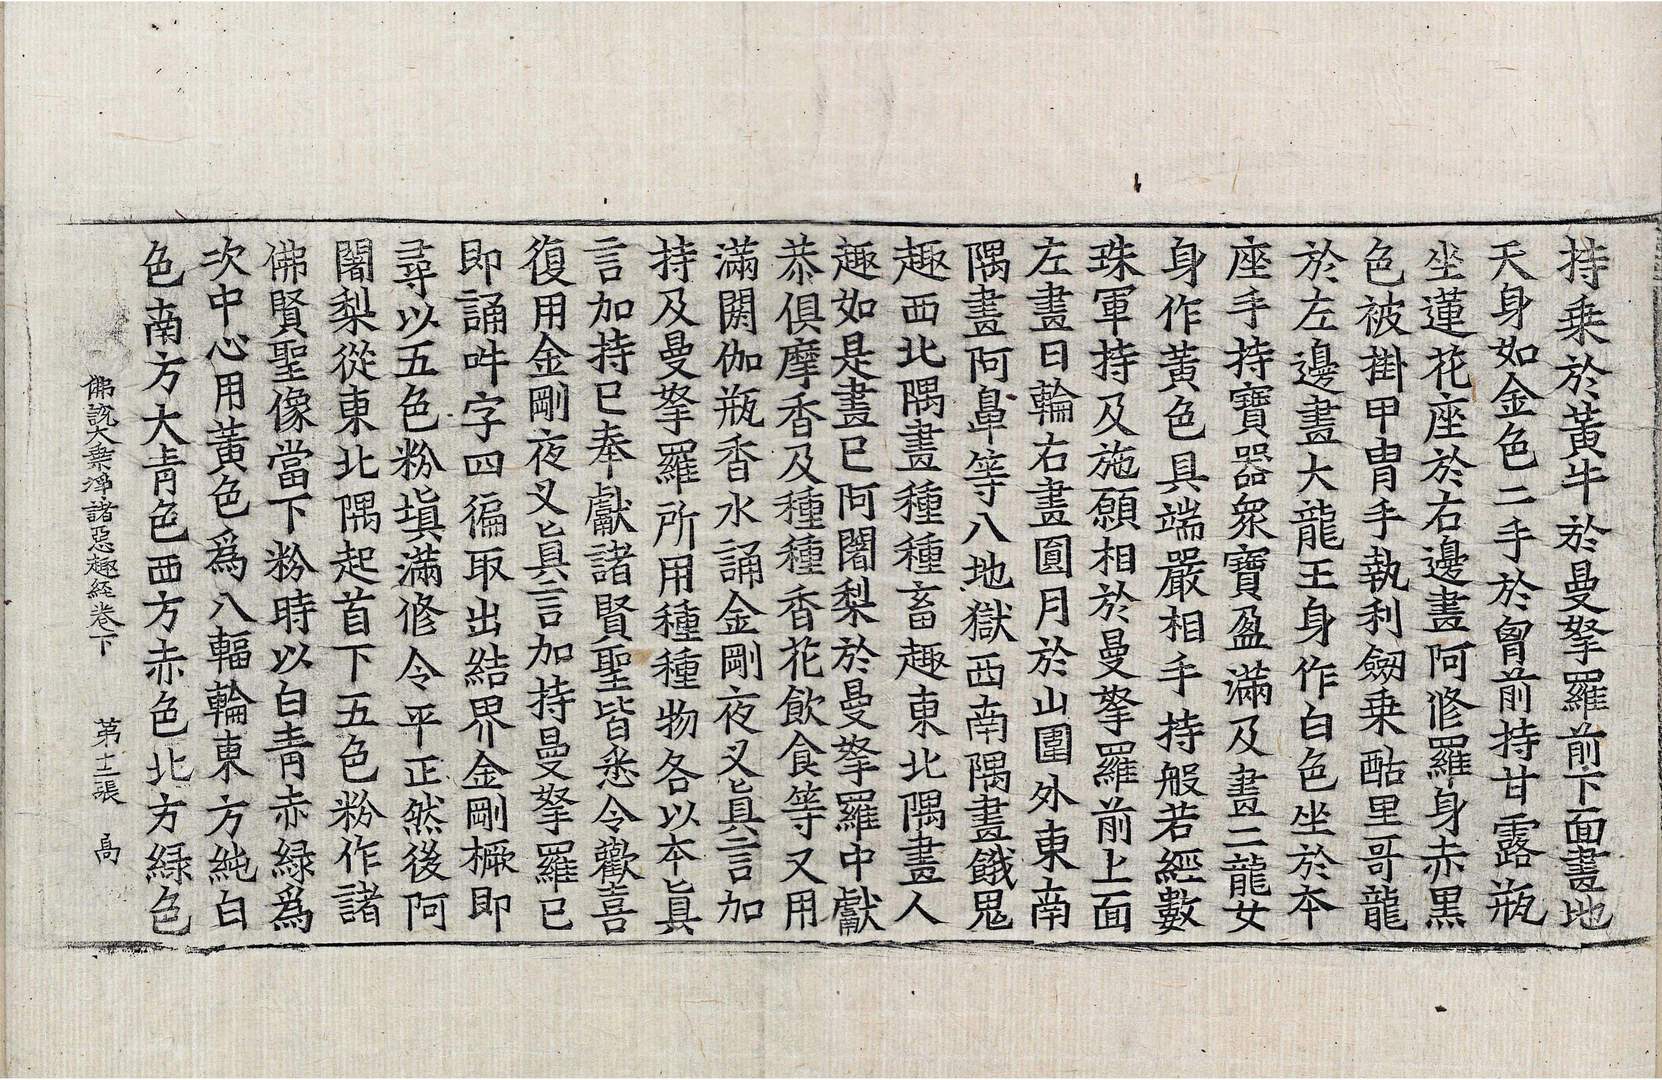 持乗於黃牛於曼拏羅前下面畫地
天身如金色二手於𦙄前持甘露瓶
坐蓮花座於右邊畫阿修羅身赤黑
色被掛甲冑手執利劒乗酤里哥龍
於左邊畫大龍王身作白色坐於本
座手持寶器衆寶盈滿及畫二龍女
身作黃色具端嚴相手持般若經數
珠軍持及施願相於曼拏羅前上面
左畫日輪右畫圓月於山圍外東南
隅畫阿鼻等八地獄西南隅畫餓鬼
趣西北隅畫種種畜趣東北隅畫人
趣如是畫已阿闍梨於曼拏羅中獻
恭俱摩香及種種香花飲食等又用
滿閼伽瓶香水誦金剛夜叉眞言加
持及曼拏羅所用種種物各以本眞
言加持已奉獻諸賢聖皆悉令歡喜
復用金剛夜叉眞言加持曼拏羅已
即誦吽字四徧取出結界金剛橛即
尋以五色粉塡滿修令平正然後阿
闍梨從東北隅起首下五色粉作諸
佛賢聖像當下粉時以白青赤綠爲
次中心用黃色爲八輻輪東方純白
色南方大青色西方赤色北方綠色
佛說大乗淨諸惡趣経卷下 第十二張 髙